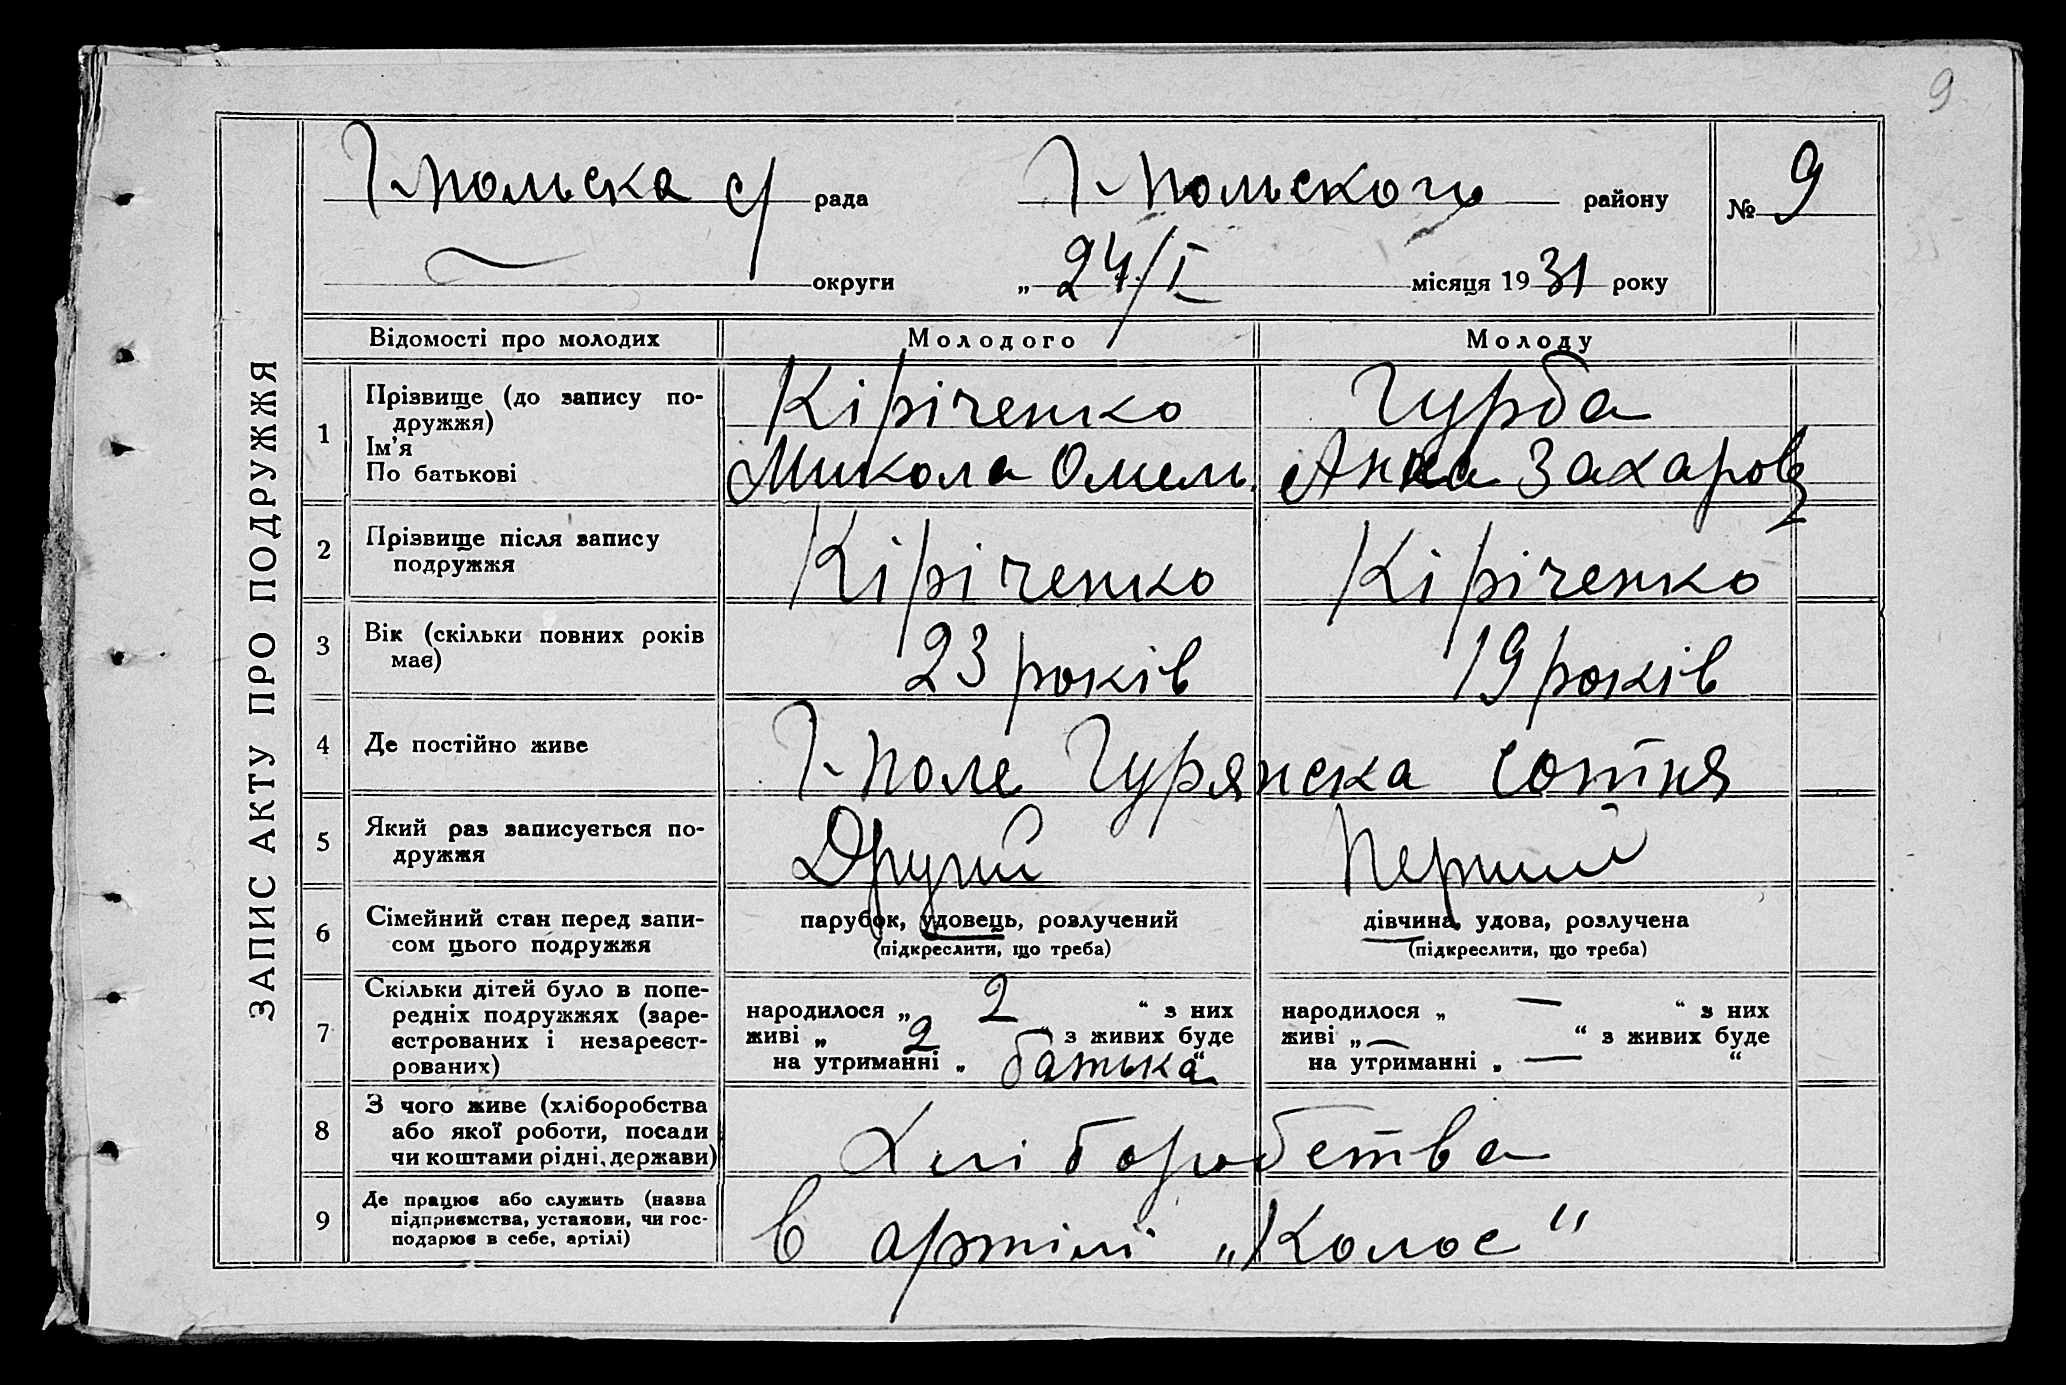 9
Г-польска с/ рада Г-польского району № 9
округи „ 24/I місяця 1931 року
ЗАПИС АКТУ ПРО ПОДРУЖЖЯ
Відомості про молодих Молодого Молоду
1 Прізвище (до запису по-
дружжя) Кіріченко Гурба
Ім'я
По батькові Микола Омель. Анна Захаров
2 Прізвище після запису
подружжя Кіріченко Кіріченко
3 Вік (скільки повних років
має) 23 років 19 років
4 Де постійно живе Г-поле Гурянска сотня
5 Який раз записується по-
дружжя Другий Перший
6 Сімейний стан перед запи-
сом цього подружжя
парубок, удовець, розлучений дівчина, удова, розлучена
(підкреслити, що треба) (підкреслити, що треба)
7 Скільки дітей було в попе-
редніх подружжях (заре-
єстрованих і незареєст-
рованих)
народилося „ 2 “ з них народилося „ — “ з них
живі „ 2 “ з живих буде живі „ — “ з живих буде
на утриманні „ батька “ на утриманні „ — “
8 З чого живе (хліборобства
або якої роботи, посади
чи коштами рідні, держави)
Хліборобства
9 Де працює або служить (назва
підприємства, установи, чи гос-
подарює в себе, артілі)
в артілі „Колос“